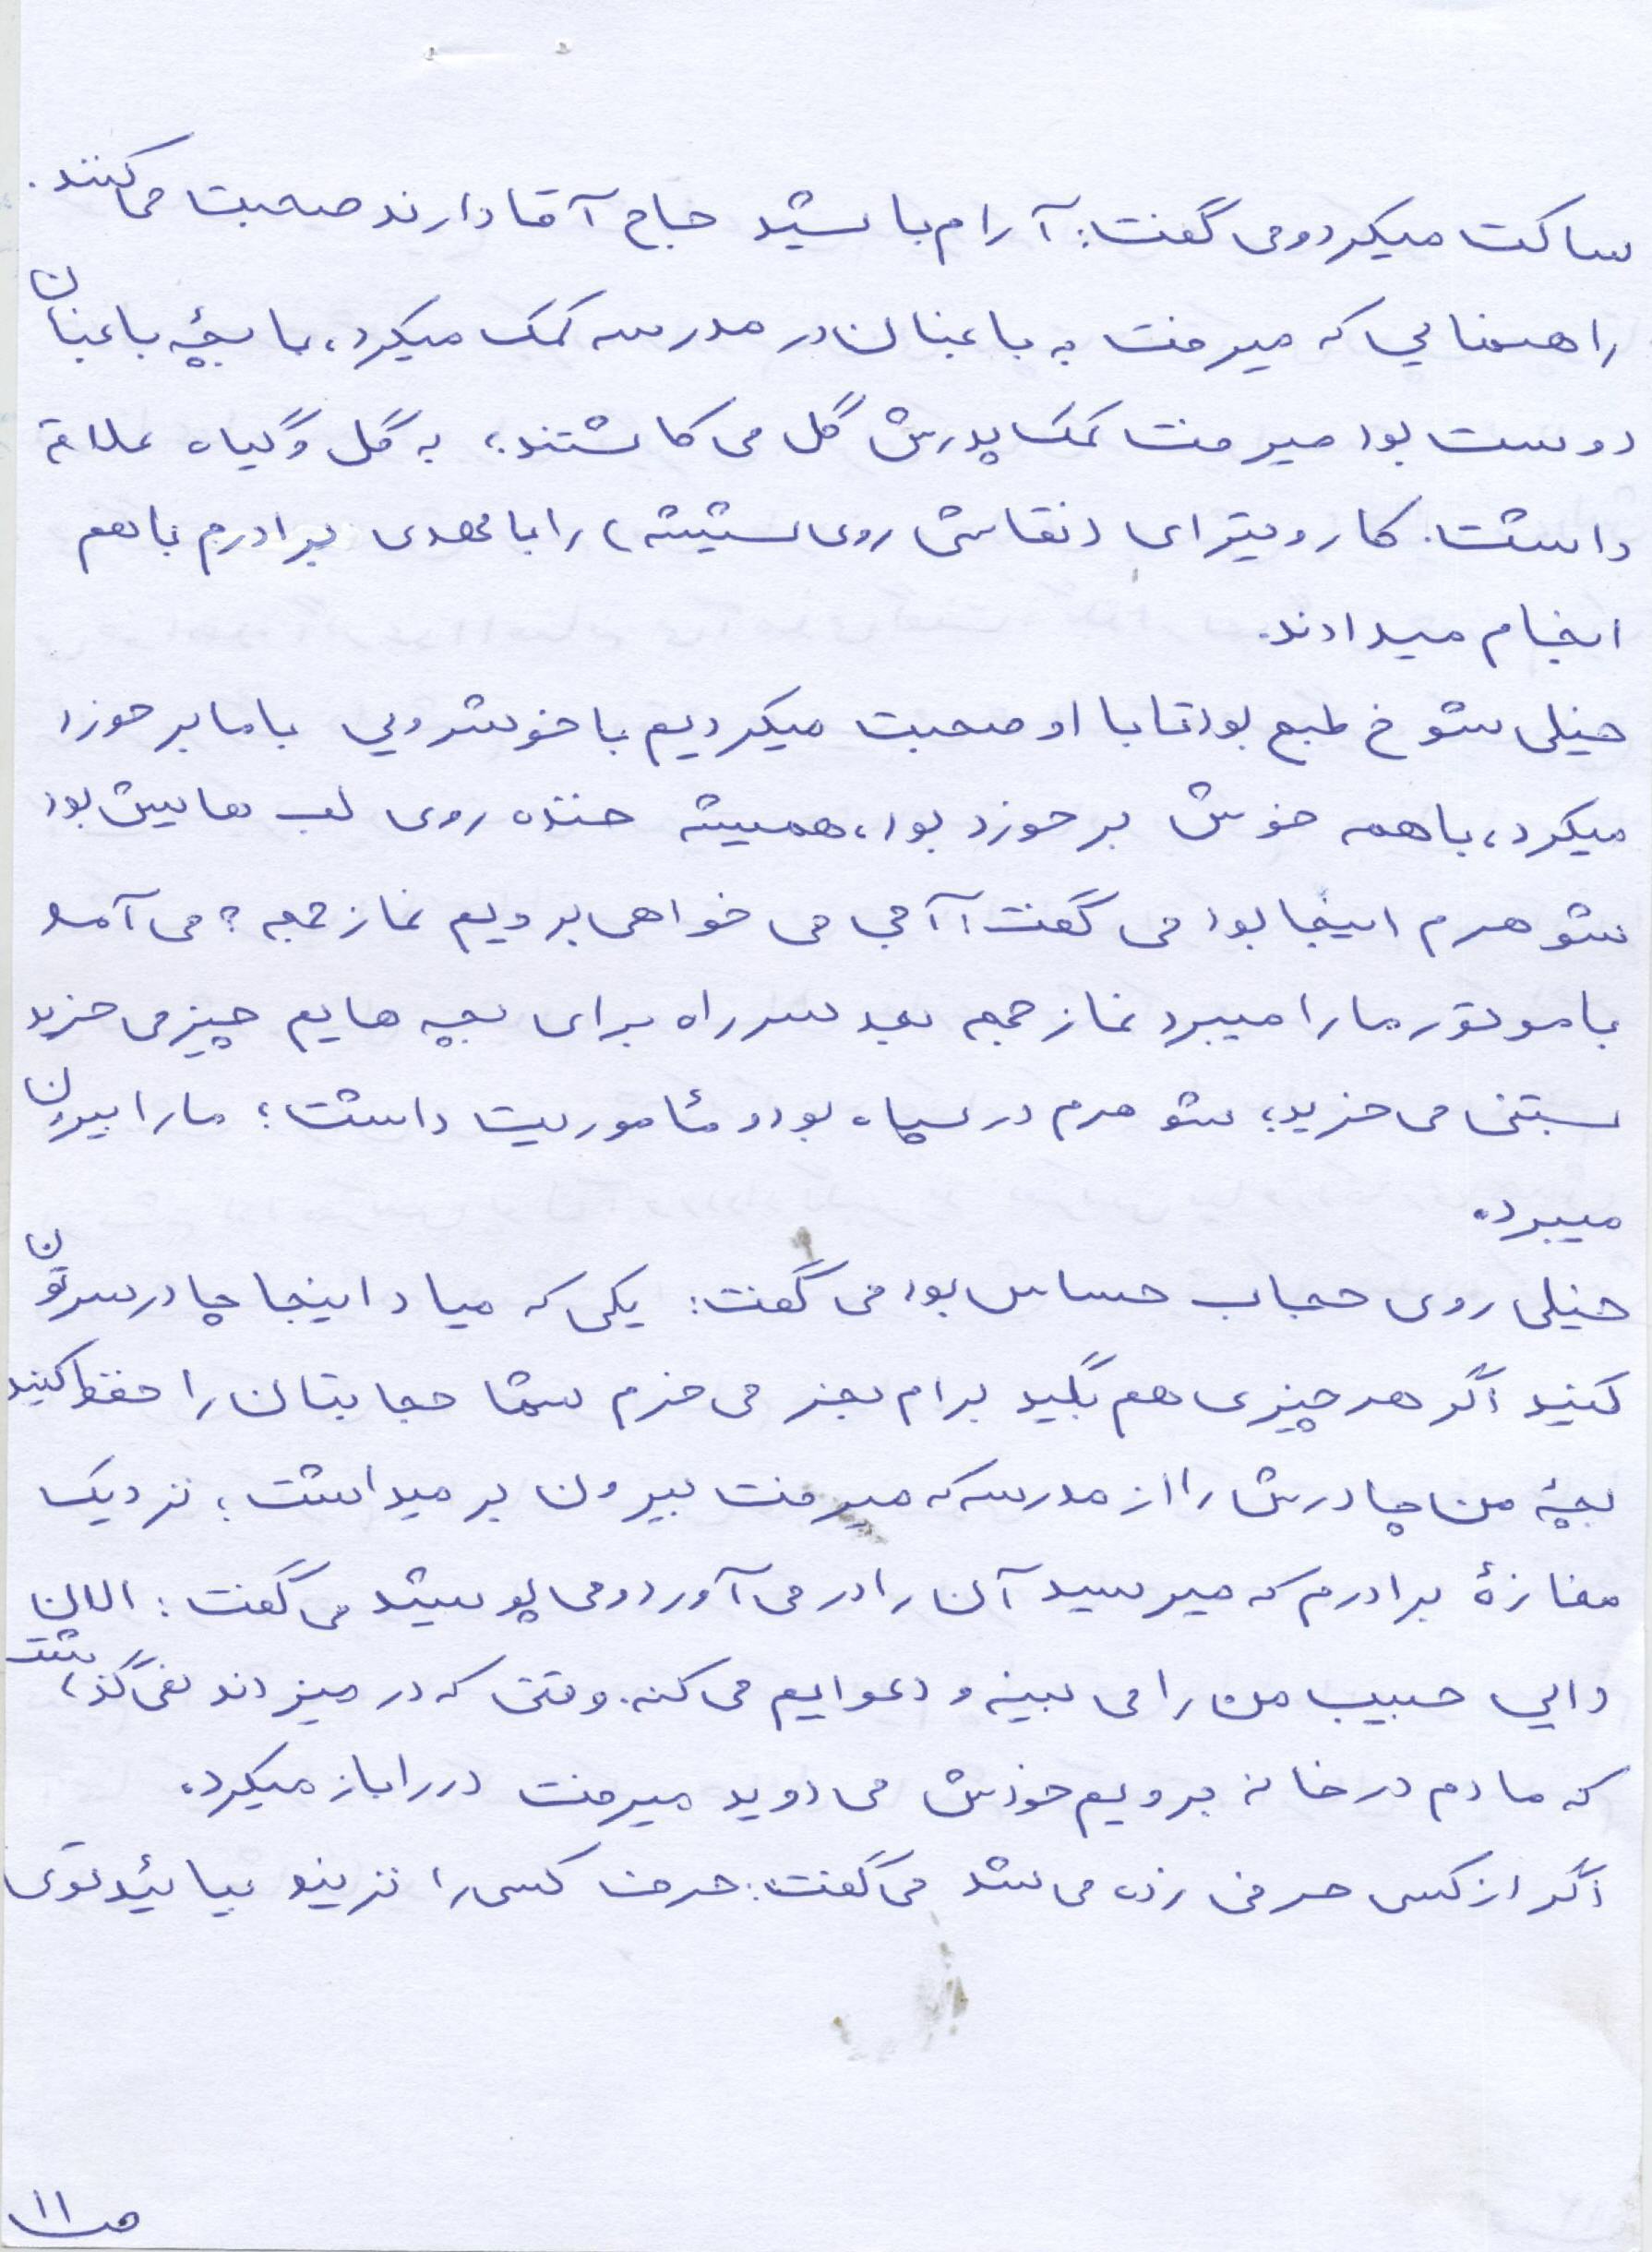 ساکت میکرد و می گفت: آرام باشید حاج آقا دارند صحبت می کنند.
راهنمایی که میرفت به باغبان در مدرسه کمک میکرد، با بچۀ باغبان
دوست بود میرفت کمک پدرش گل می کاشتند؛ به گل و گیاه علاقه
داشت. کار ویترای (نقاشی روی شیشه) را با مهدی برادرم با هم
انجام میدادند.
خیلی شوخ طبع بود تا با او صحبت میکردیم با خوشرویی با ما برخورد
میکرد، با همه خوش برخورد بود، همیشه خنده روی لب هایش بود
شوهرم اینجا بود می گفت: آجی می خواهی برویم نماز جمعه؟ می آمد
با موتور ما را میبرد نماز جمعه بعد سر راه برای بچه هایم چیز می خرید
بستنی می خرید؛ شوهرم در سپاه بود و مأموریت داشت؛ ما را بیرون
میبرد.
خیلی روی حجاب حساس بود می گفت: یکی که میاد اینجا چادر سرتون
کنید اگر هر چیزی هم بگید برام بخر می خرم شما حجابتان را حفظ کنید
بچۀ من چادرش را از مدرسه که میرفت بیرون بر میداشت؛ نزدیک
مغازۀ برادرم که میرسید آن را در می آورد و می پوشید می گفت: الان
دایی حبیب من را می بینه و دعوایم می کنه. وقتی که در میزدند نمی گذاشت
که ما دم در خانه برویم خودش می دوید میرفت در را باز میکرد.
اگر از کسی حرفی زده می شد می گفت: حرف کسی را نزنید بیائید توی
ص ۱۱